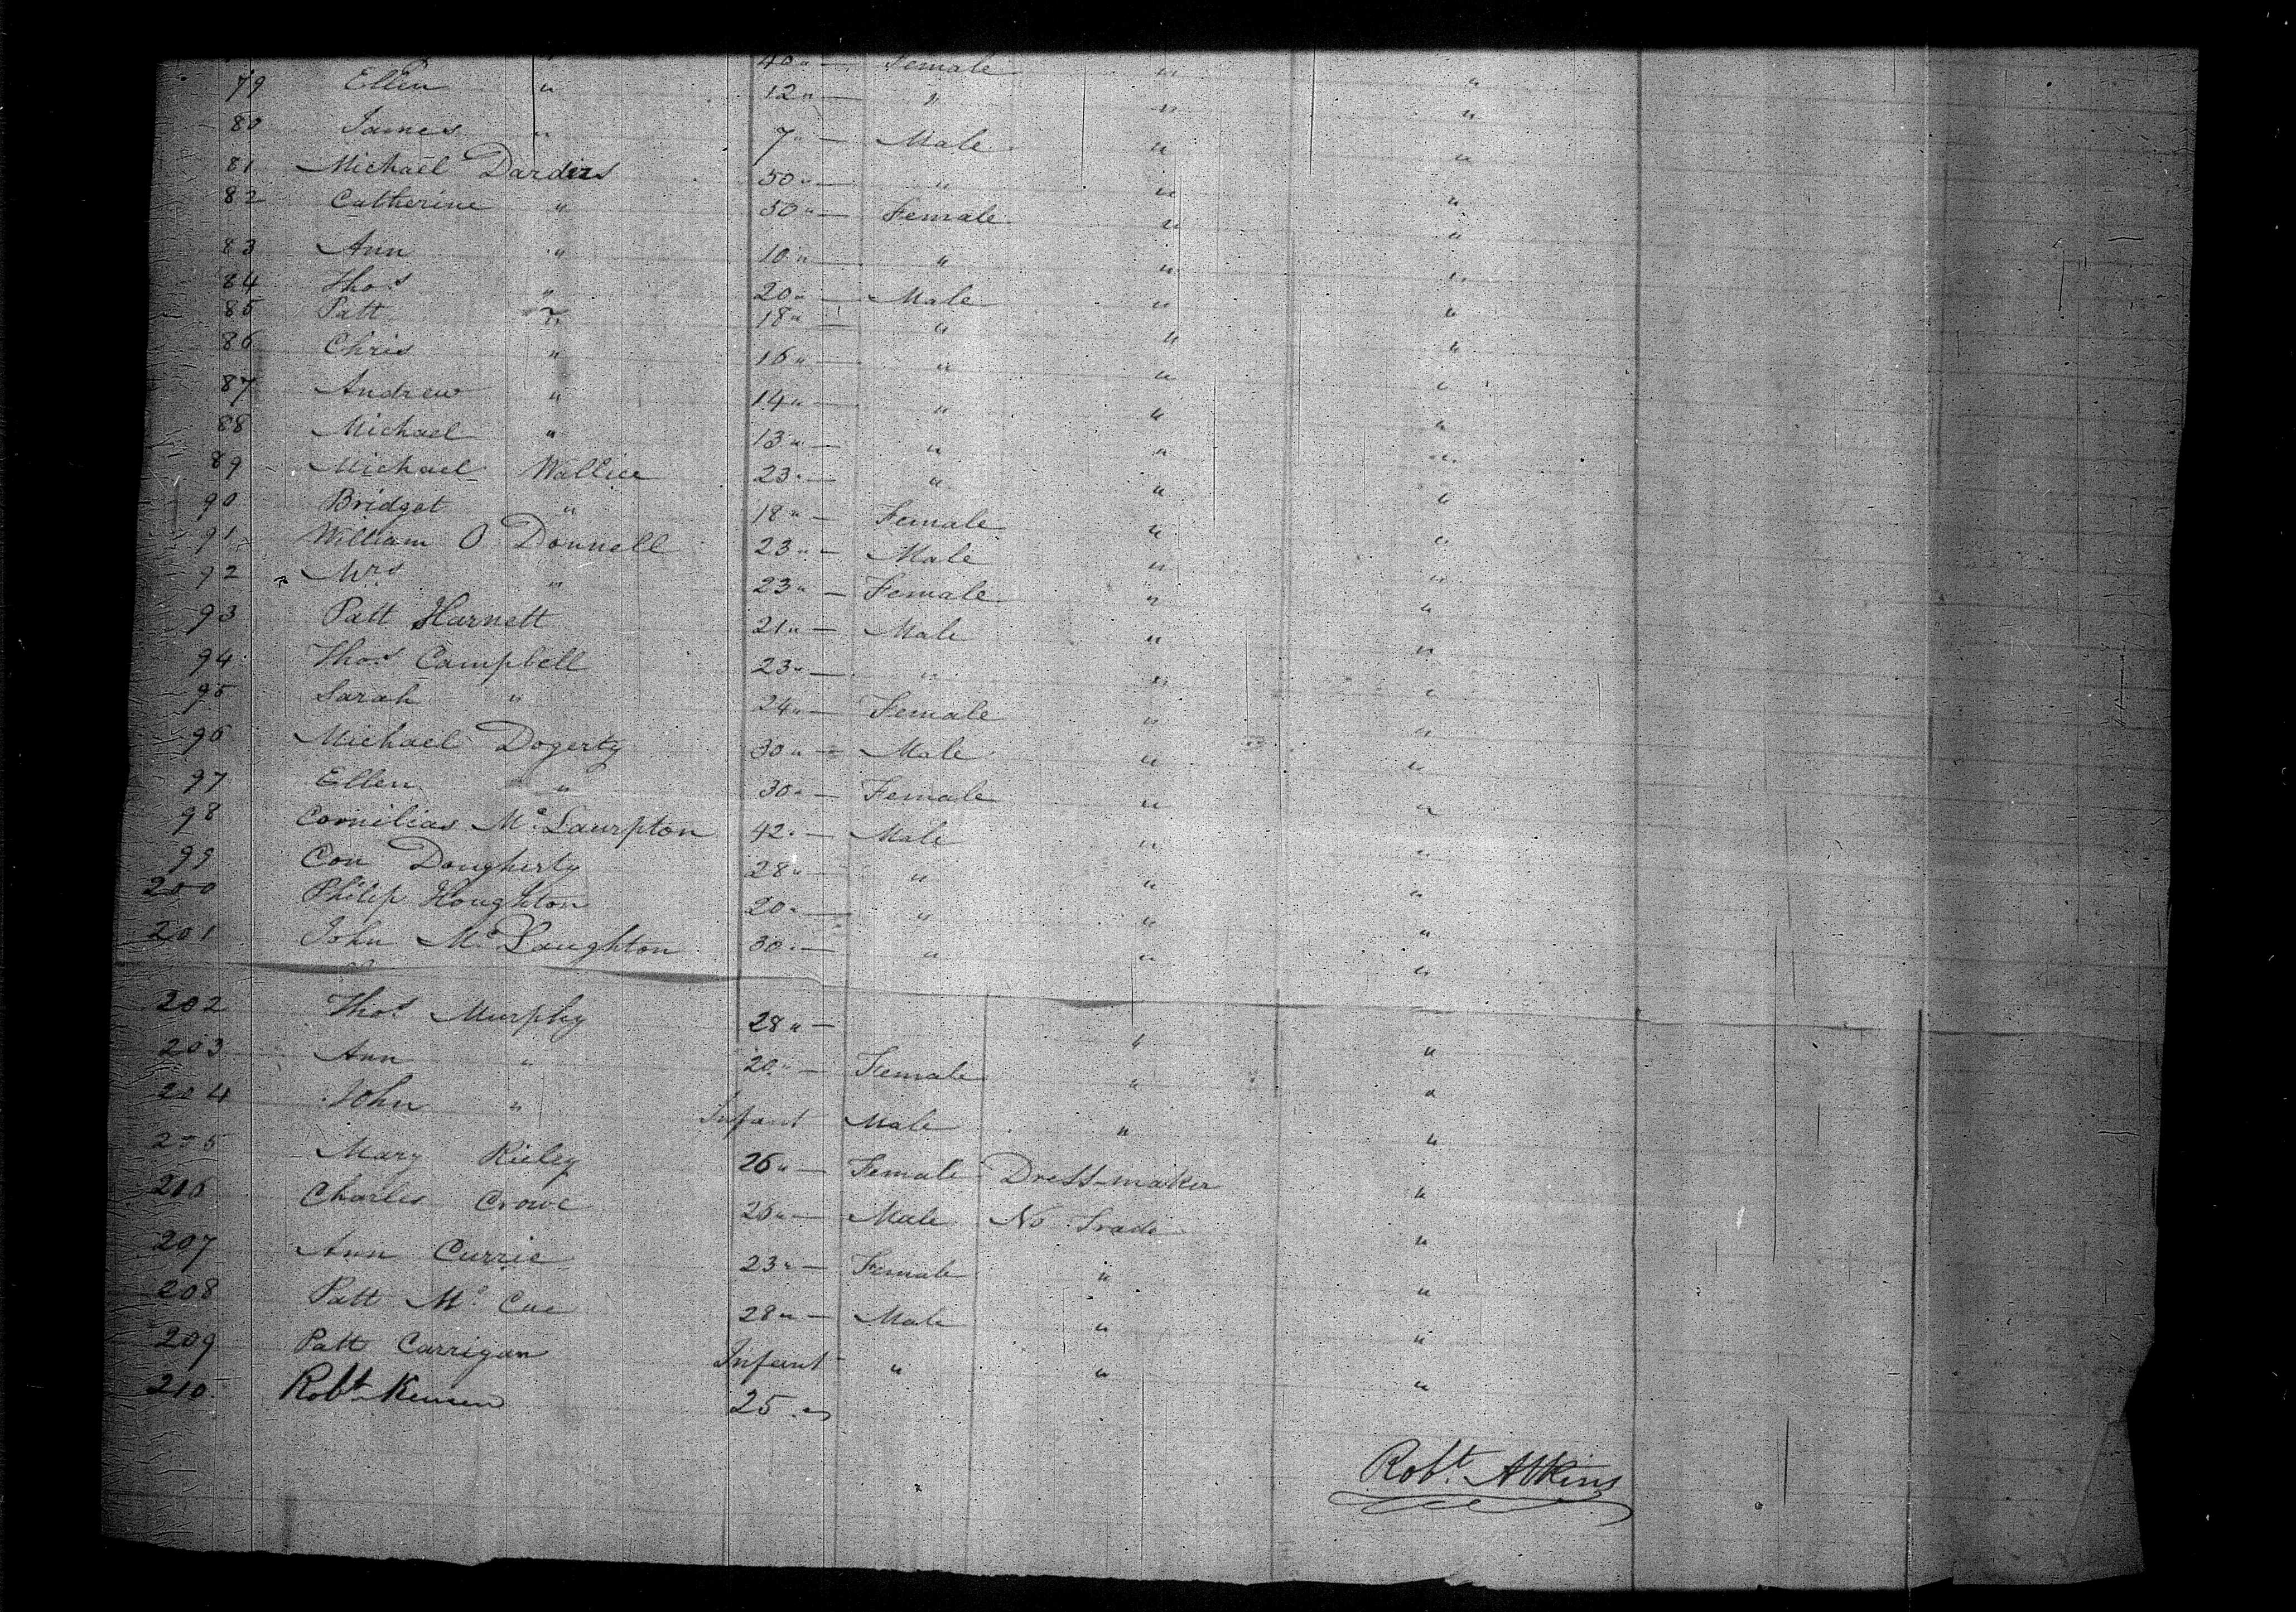 40 " — Female " "
79 Ellen " 12 " — " " "
80 James " 7 " — Male " "
81 Michael Dardis 50 " — " " "
82 Catherine " 50 " — Female " "
83 Ann " 10 " — " " "
84 Thos " 20 " — Male " "
85 Patt " 18 " — " " "
86 Chris " 16 " — " " "
87 Andrew " 14 " — " " "
88 Michael " 13 " — " " "
89 Michael Wallice 23 " — " " "
90 Bridget " 18 " — Female " "
91 William O Donnell 23 " — Male " "
92 Mrs " 23 " — Female " "
93 Patt Harnett 21 " — Male " "
94 Thos Campbell 23 " — " " "
95 Sarah " 24 " — Female " "
96 Michael Dogerty 30 " — Male " "
97 Ellen " 30 " — Female " "
98 Cornilias Mc Laurpton 42 " — Male " "
99 Con Dougherty 28 " — " " "
200 Philip Houghton 20 " — " " "
201 John Mc Laughton 30 " — " " "
202 Thos Murphy 28 " — " "
203 Ann " 20 " — Female " "
204 John " Infant Male " "
205 Mary Rieley 26 " — Female Dress-maker "
206 Charles Crowe 26 " — Male No Trade "
207 Ann Currie 23 " — Female " "
208 Patt Mc Cue 28 " — Male " "
209 Patt Carrigan Infant " " "
210 Robt 25 "
Robt. Atkins